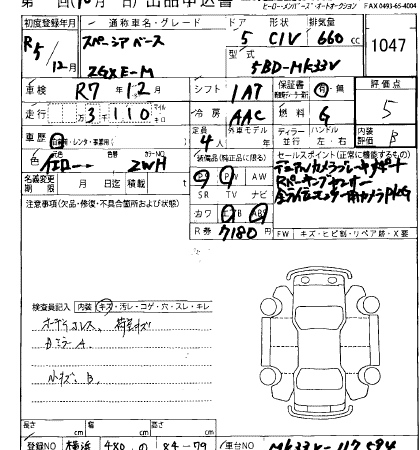 ヒーロー・メンバーズ・オートオークション FAX 0493-65-4004
初度登録年月 通称車名・グレード ドア 形状 排気量
R5/12月 スペーシアベース 5 CIV 660 cc 1047
ZGXE-M 型式 5BD-MK33V
車検 R7年12月 シフト IAT 保証書 有・無 評価点
走行 万3千110 マイル キロ 冷房 AAC 燃料 G 5
車歴 自家用・レンタ・事業用( ) 定員 4人 外車モデル ディラー 並行 ハンドル 左・右 内装評価 B
色 元色 色替 カラーNO 装備品(純正品に限る) セールスポイント(正常に機能するもの)
イエロー ZWH PS PW AW デュアルカメラブレーキサポート
名義変更期限 月 日迄 積載 t SR TV ナビ
注意事項(欠品・修復・不具合箇所および状態) カワ エアB ABS
R券 7180 FW キズ・ヒビ割・リペア跡・X
検査員記入 内装 キズ・汚レ・コゲ・穴・スレ・キレ
オーディオレス、荷室キズ
Dミラー A
小キズ、B
長さ cm 幅 cm 高さ cm
登録NO 横浜 480 の 84-79 車台NO MK33V-117594